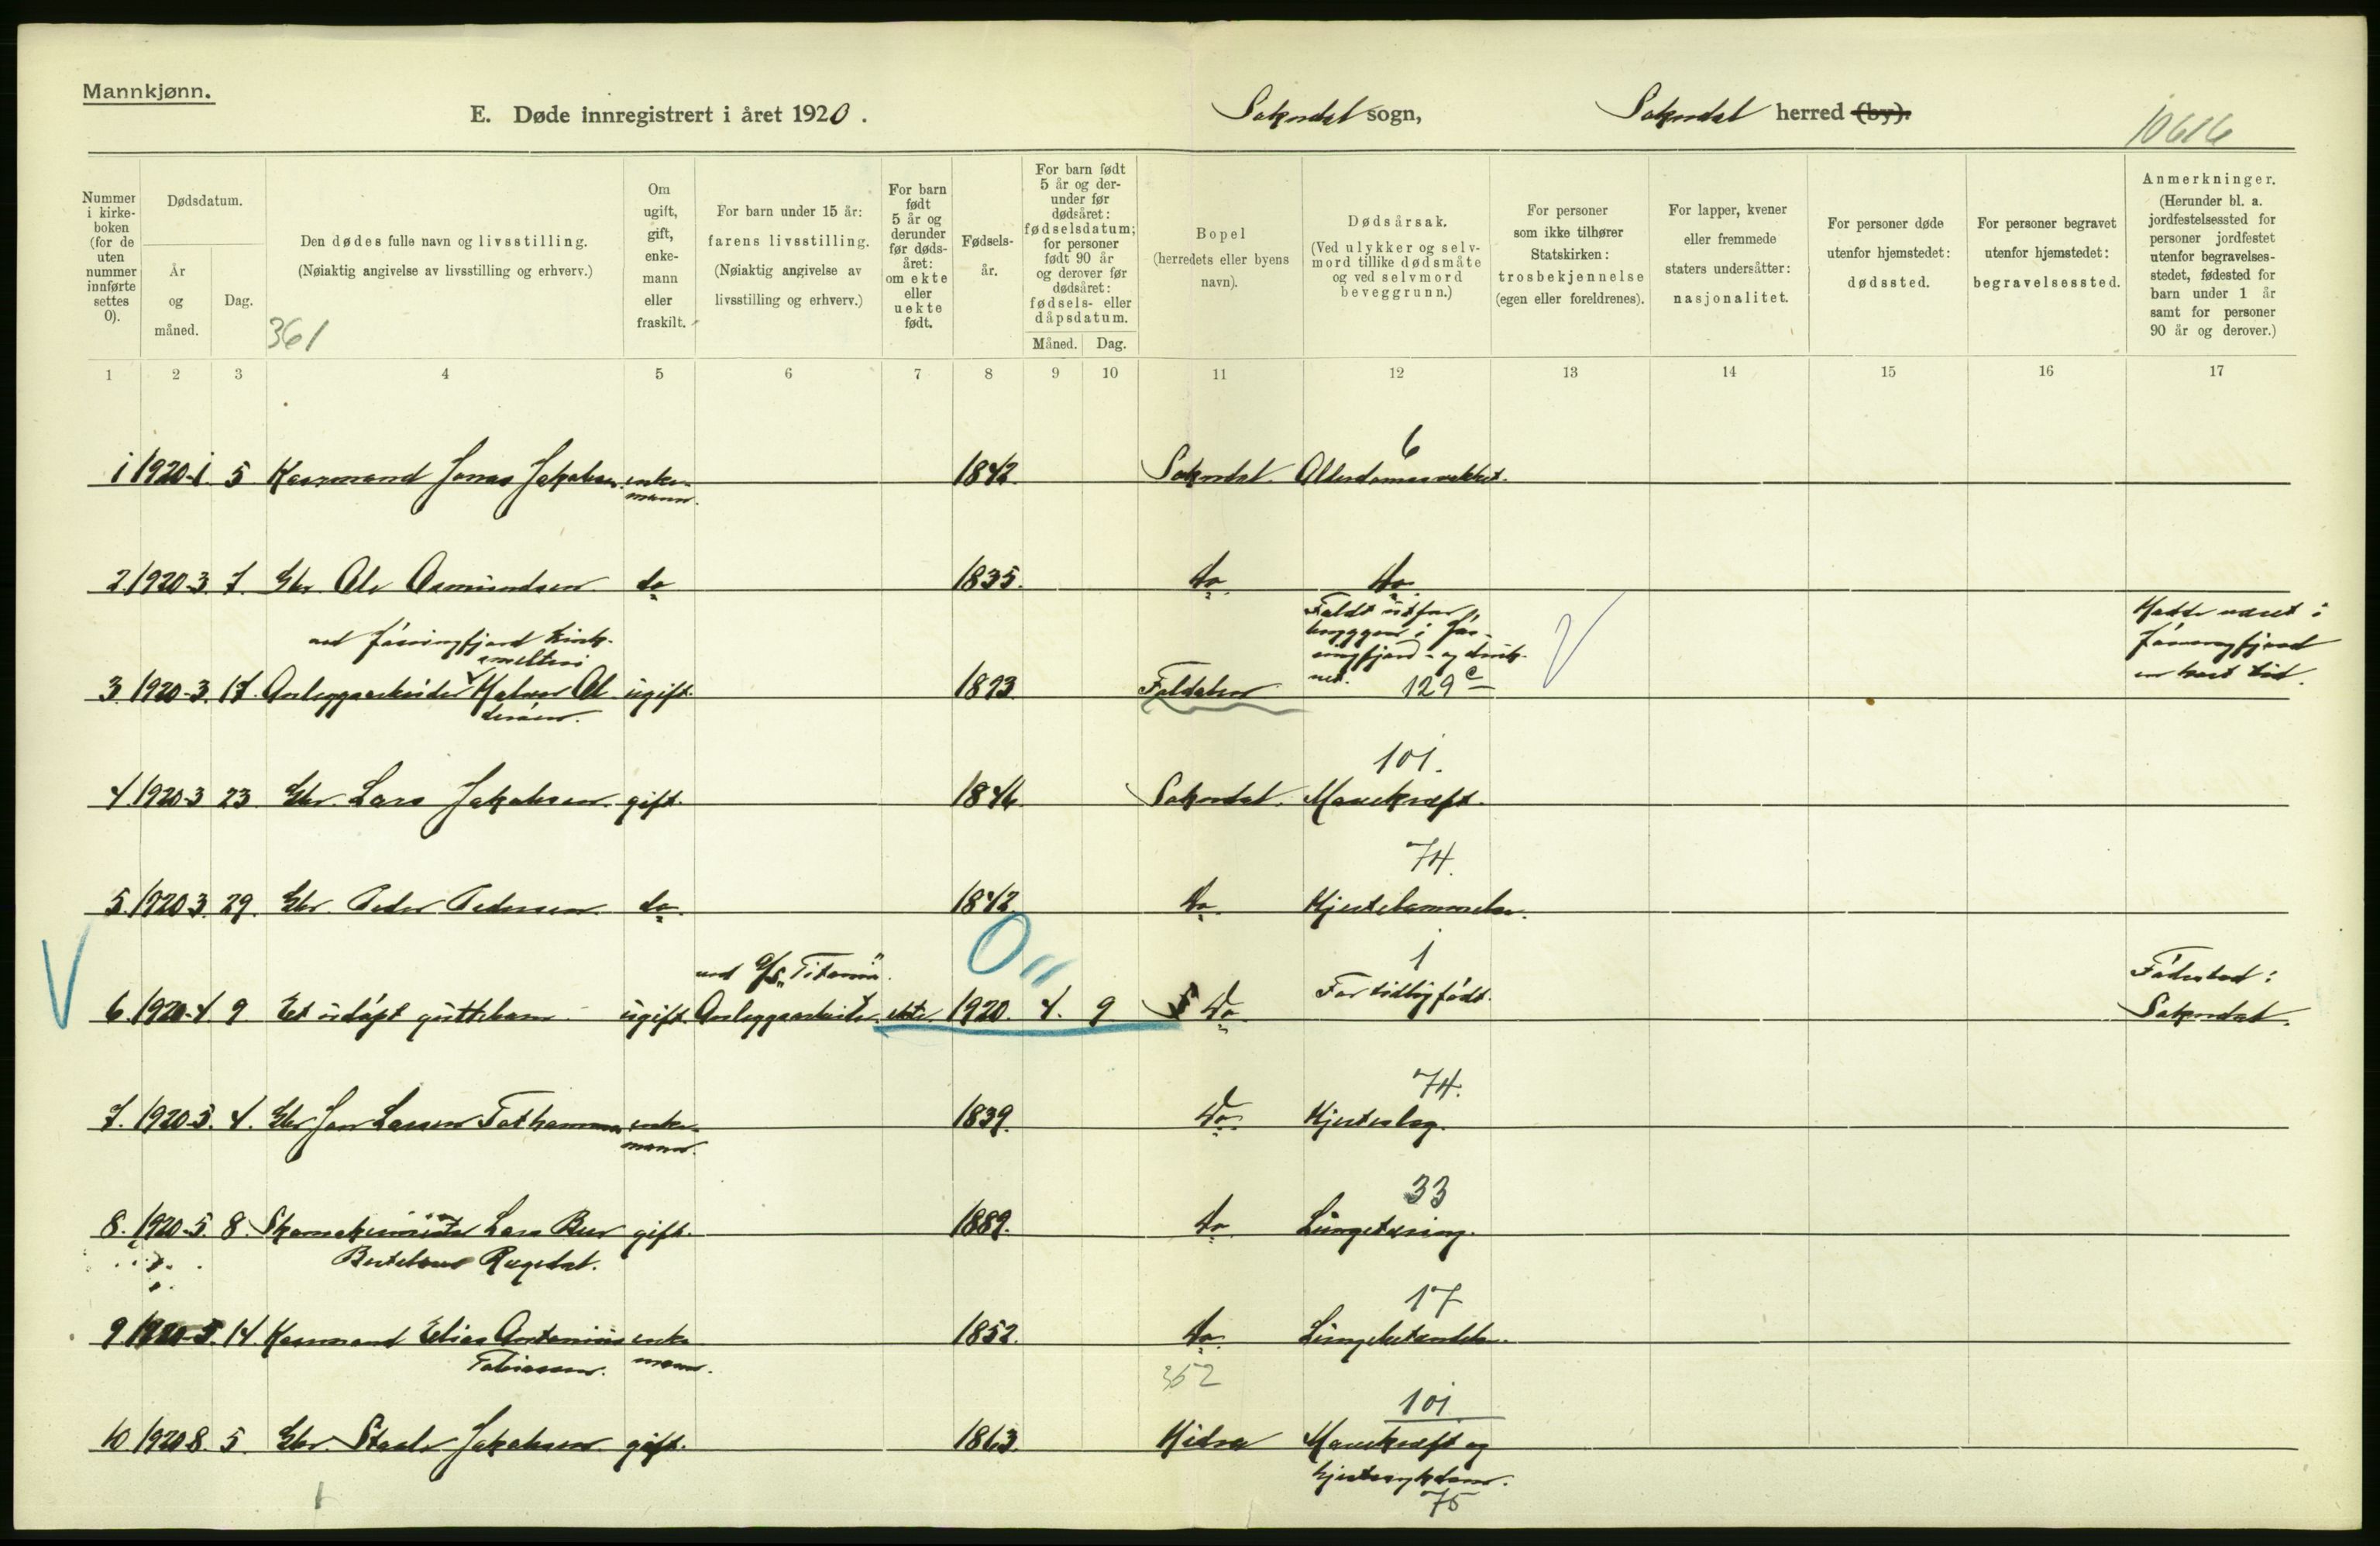 Mannkjønn.
E. Døde innregistrert i året 1920. Sokndal sogn, Sokndal herred (by).
10616
Nummer i kirke-boken (for de uten nummer innførte settes 0).
Dødsdatum.
År og måned.
Dag.
Den dødes fulle navn og livsstilling.
(Nøiaktig angivelse av livsstilling og erhverv.)
361
Om ugift, gift, enke-mann eller fraskilt.
For barn under 15 år: farens livsstilling.
(Nøiaktig angivelse av livsstilling og erhverv.)
For barn født 5 år og derunder før døds-året: om ekte eller uekte født.
Fødsels-år.
For barn født 5 år og der-under før dødsåret: fødselsdatum; for personer født 90 år og derover før dødsåret: fødsels- eller dåpsdatum.
Måned. Dag.
Bopel
(herredets eller byens navn).
Dødsårsak.
(Ved ulykker og selv-mord tillike dødsmåte og ved selvmord beveggrunn.)
For personer som ikke tilhører Statskirken: trosbekjennelse (egen eller foreldrenes).
For lapper, kvener eller fremmede staters undersåtter: nasjonalitet.
For personer døde utenfor hjemstedet: dødssted.
For personer begravet utenfor hjemstedet: begravelsessted.
Anmerkninger.
(Herunder bl. a. jordfestelsessted for personer jordfestet utenfor begravelses-stedet, fødested for barn under 1 år samt for personer 90 år og derover.)
1 2 3 4 5 6 7 8 9 10 11 12 13 14 15 16 17
6
1 1920-1. 5 Kaarmand Jonas Jakobsen enke- 1842. Sokndal. Alderdomssvakhet.
mann.
2. 1920-3. 7. Gbr. Ole Osmundsen. do 1835. do. do.
ved Jøssingfjord Zink-
smelteri
Faldt utfor
bryggen i Jøs-
singfjord - og druk-
net. 129 c
Hadde været i
Jøssingfjord
en kort tid.
3. 1920-3. 17. Anleggsarbeider ugift. 1893.
101.
4. 1920-3 23. Gbr. Lars Jakobsen. gift. 1846. Sokndal. Mavekræft.
74.
5. 1920 3. 29. Gbr. Peder Pedersen. do. 1842. do. Hjertelammelse.
ved A/S „Titania". 0 1
Fødested:
6. 1920-4 9 Et udøpt guttebarn ugift. Anleggsarbeider. ekte 1920. 4. 9 do. For tidlig født. Sokndal.
74.
7. 1920-5. 4. Gbr Jan Larsen enke- 1839. do. Hjerteslag.
mann.
33
8. 1920-5. 8. Skomakermester Lars gift. 1889. do. Lungetæring.
Bertelsen Regedal.
17
9. 1920-5. 14 Kaarmand Elias Antonius enke 1852. do. Lungebetændelse.
Tobiassen. mann.
352
101
10 1920 8. 5. Gbr. Jakobsen gift. 1863. Hidra Mavekræft og
hjertesykdom.
75